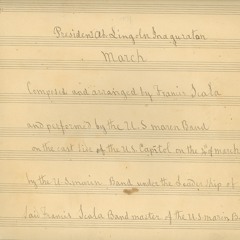 President Ab Lincoln Inaguraton
March
Composed and arranged by Francis Scala
and performed by the U. S marin Band
on the east side of the U.S. Capitol on the 4 of march
by the U.S marin Band under the Leader Ship of
Said Francis Scala Band master of the U.S marin Ban